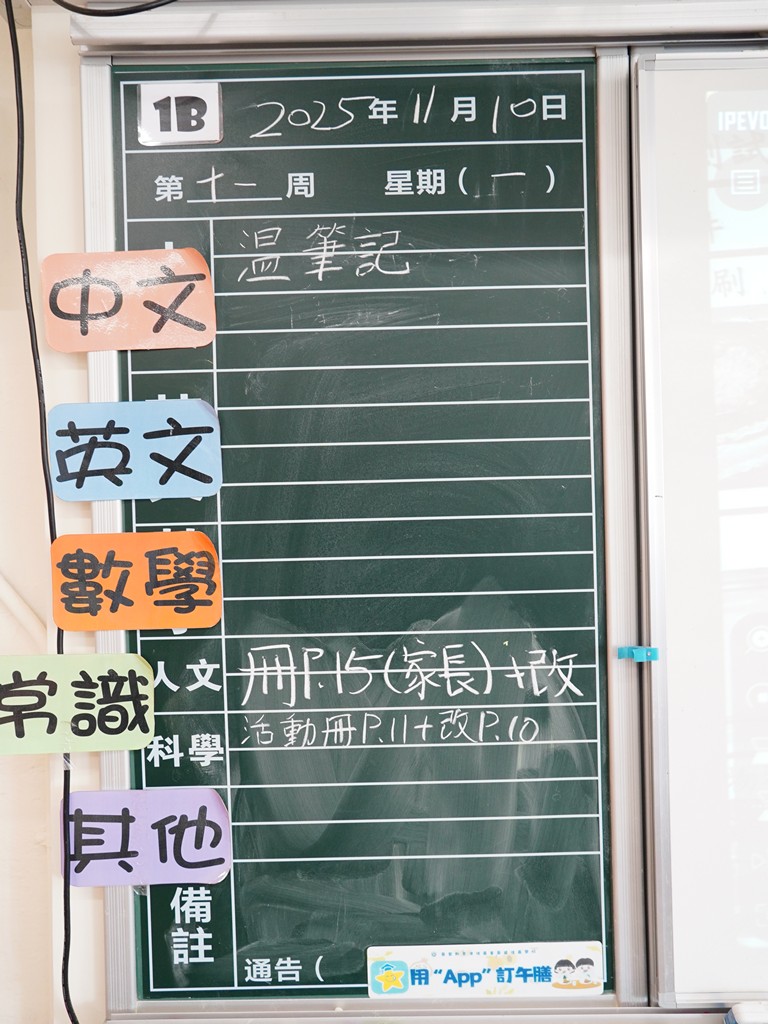 1B 2025年11月10日
第十一周 星期(一)
中文 溫筆記
英文
數學
人文 冊P.15(家長)+改
常識
科學 活動冊P.11+改P.10
其他
備註
通告(
用“App”訂午膳
IPEVO
刷